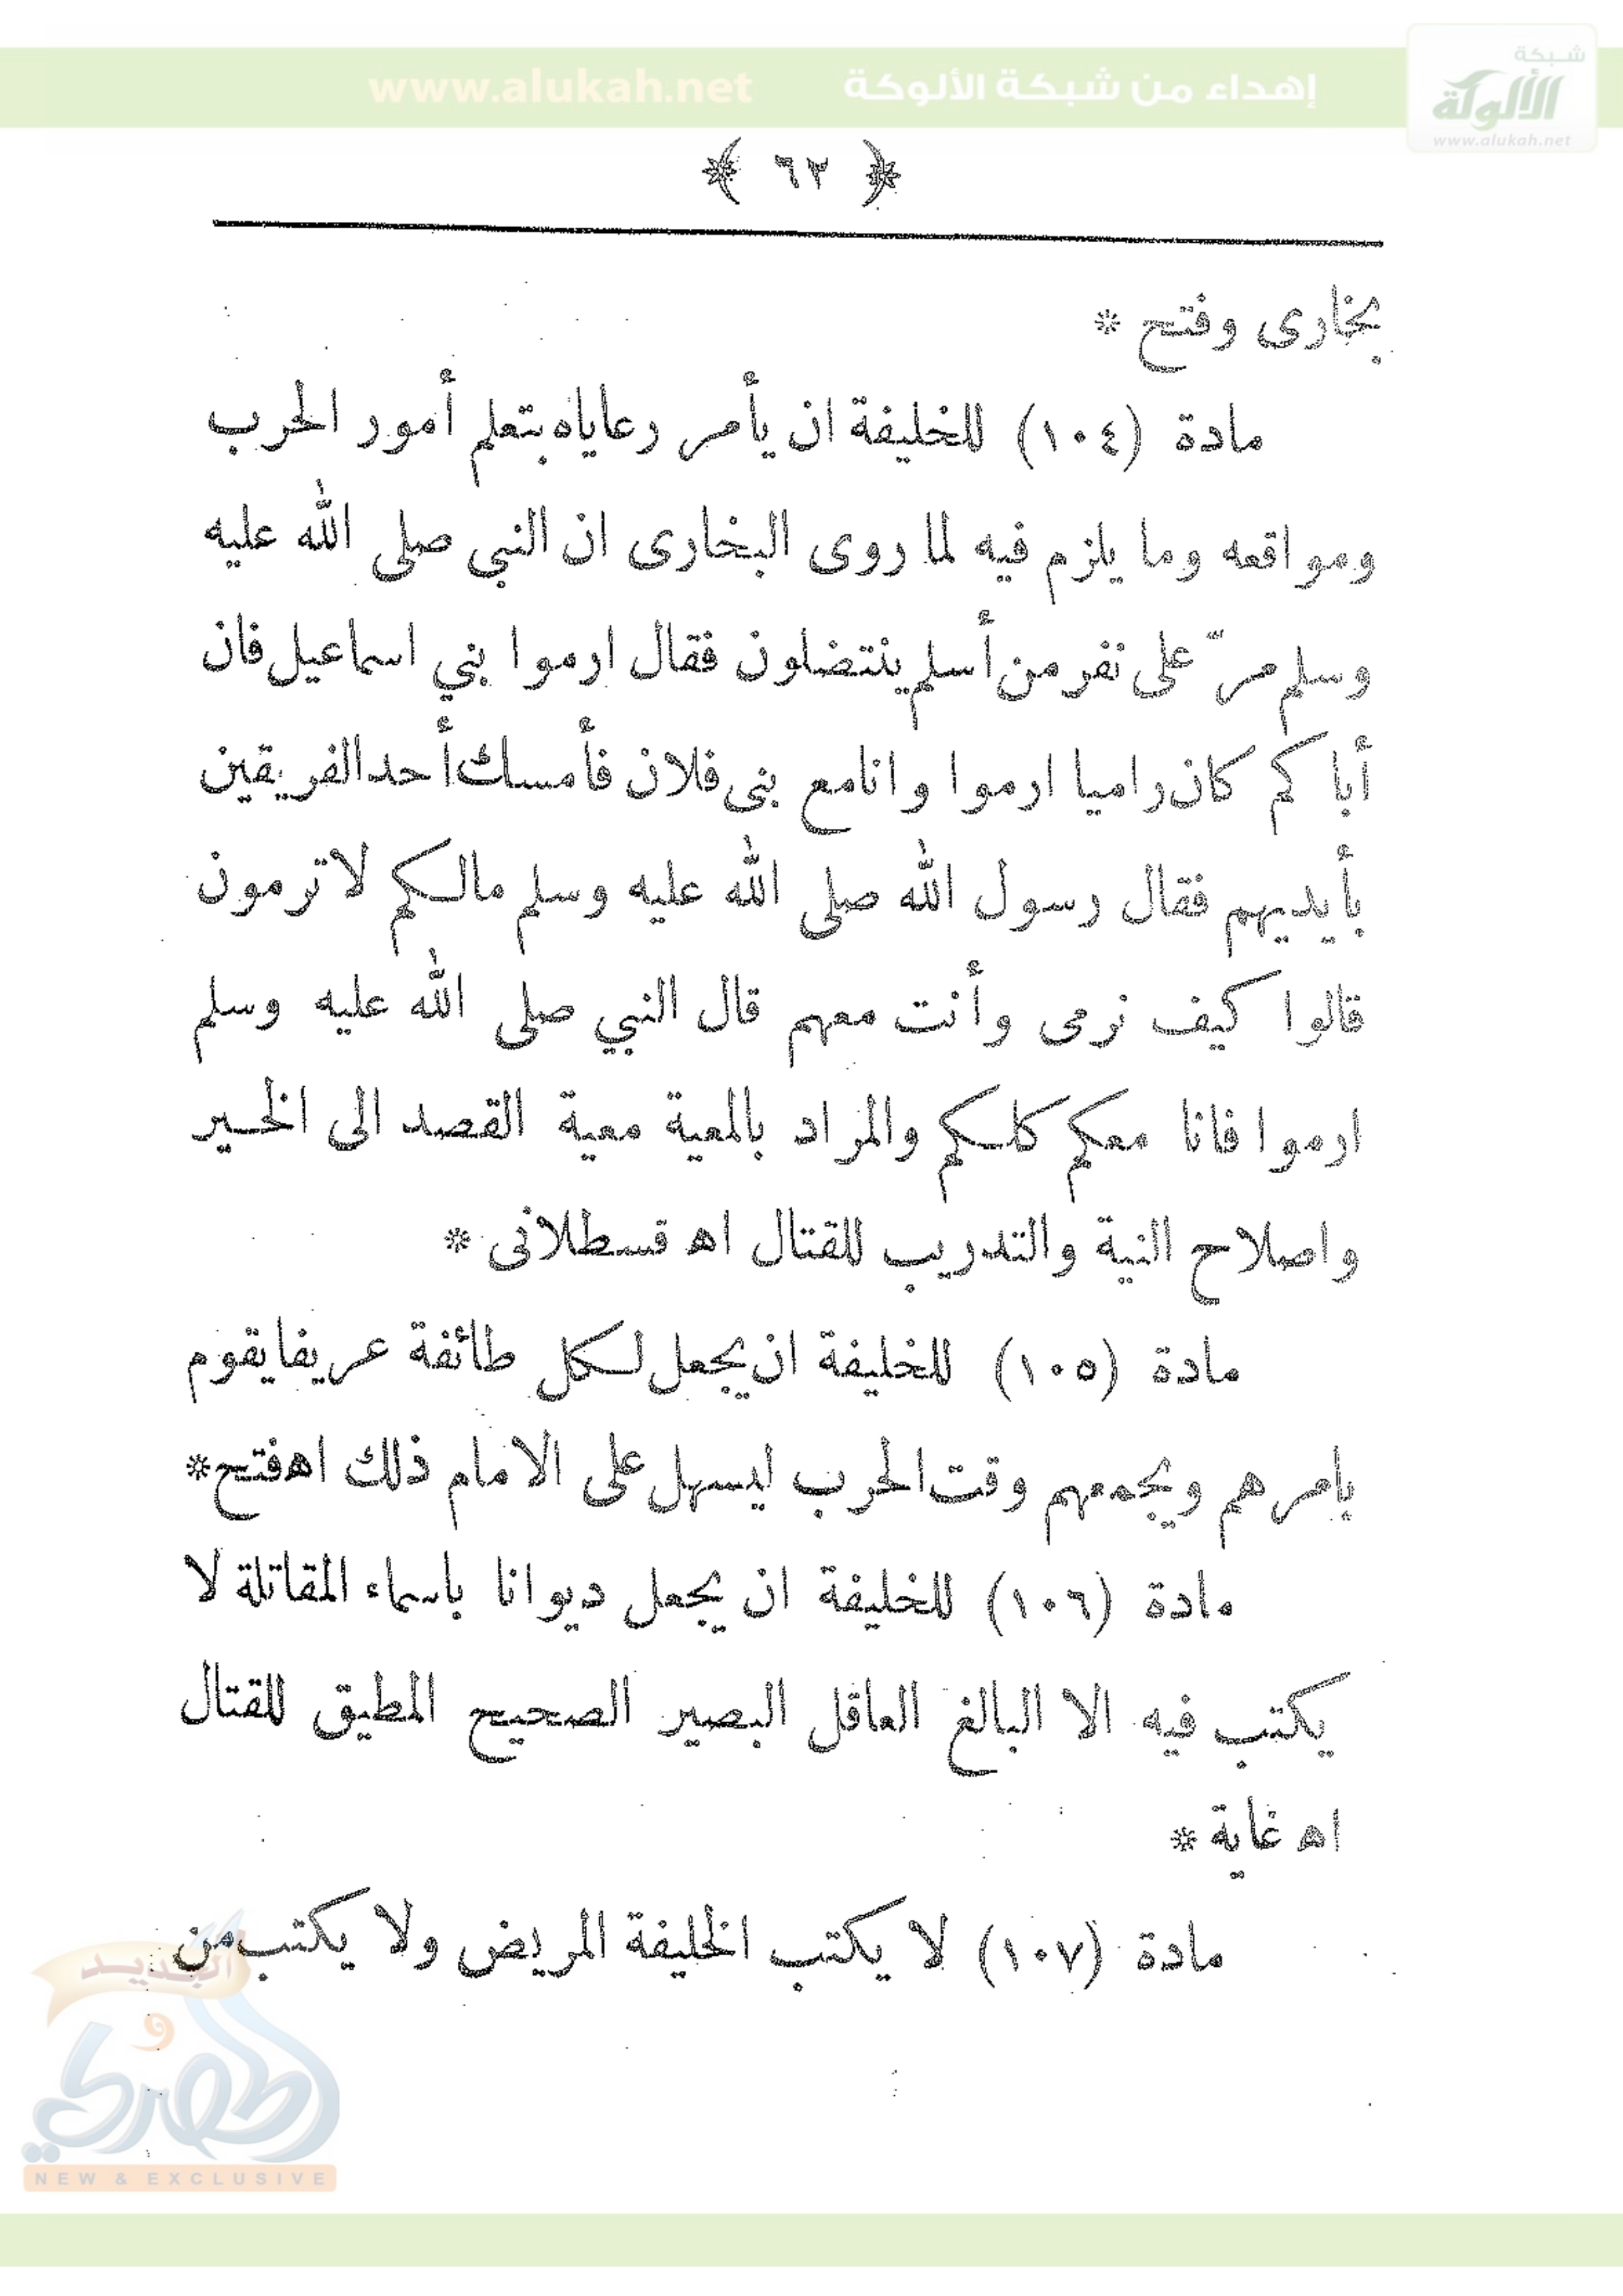 شبكة
الألوكة
www.alukah.net
إهداء من شبكة الألوكة www.alukah.net
﴿ ٦٢ ﴾
بخارى وفتح *
مادة (١٠٤) للخليفة ان يأمر رعاياه بتعلم أمور الحرب
ومواقعه وما يلزم فيه لما روى البخارى ان النبي صلى الله عليه
وسلم مرّ على نفر من أسلم ينتضلون فقال ارموا بني اسماعيل فان
أباكم كان راميا ارموا وانا مع بنى فلان فأمسك أحد الفريقين
بأيديهم فقال رسول الله صلى الله عليه وسلم مالكم لا ترمون
قالوا كيف نرمى وأنت معهم قال النبي صلى الله عليه وسلم
ارموا فانا معكم كلكم والمراد بالمعية معية القصد الى الخير
واصلاح النية والتدريب للقتال اهـ قسطلانى *
مادة (١٠٥) للخليفة ان يجعل لكل طائفة عريفا يقوم
بامرهم ويجمعهم وقت الحرب ليسهل على الامام ذلك اهـ فتح *
مادة (١٠٦) للخليفة ان يجعل ديوانا باسماء المقاتلة لا
يكتب فيه الا البالغ العاقل البصير الصحيح المطيق للقتال
اهـ غاية *
مادة (١٠٧) لا يكتب الخليفة المريض ولا يكتب من
الجديد
و
الحصري
NEW & EXCLUSIVE